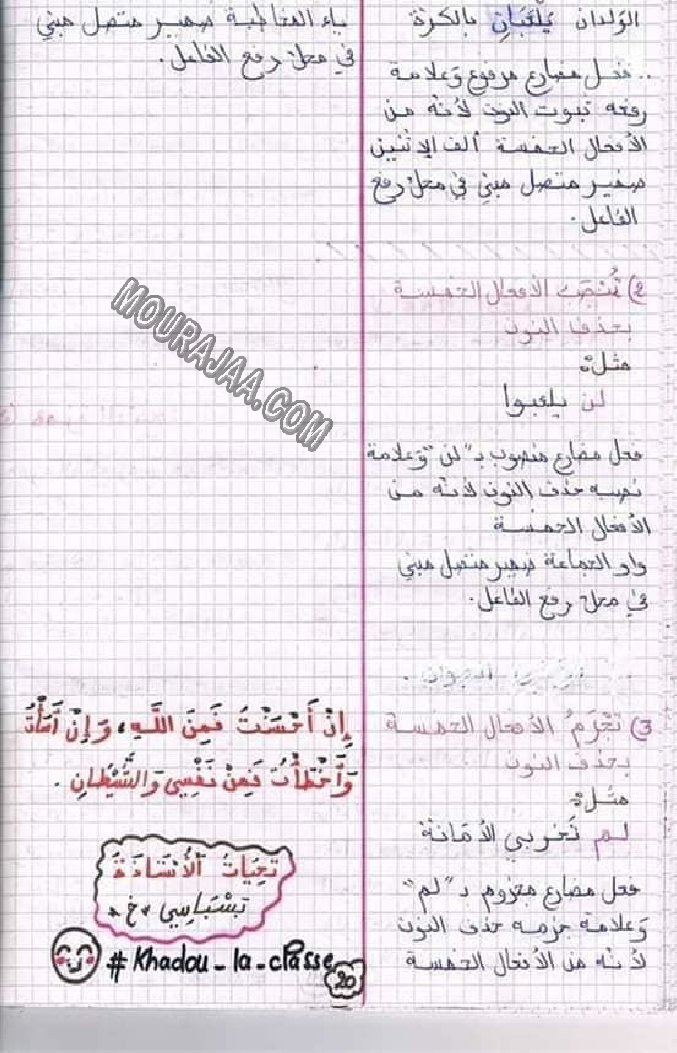 الوَلدان يَلْعَبَانِ بالكرة
.. فعل مضارع مرفوع وَعلامة
رفعه ثبوت النون لأنّه من
الأفعال الخمسة ألف الإثنين
ضمير متصل مبني في محل رفع
الفاعل.
2) تُنصبُ الأفعال الخمسة
بحذف النون
مثل:
لن يلعبوا
فعل مضارع منصوب بـ "لن" وَعلامة
نصبه حذف النون لأنّه من
الأفعال الخمسة
واو الجماعة ضمير متصل مبني
في محل رفع الفاعل.
3) تُجْزَمُ الأفعال الخمسة
بحذف النون
مثل:
لم الأمانة
فعل مضارع مجزوم بـ "لم"
وَعلامة جزمه حذف النون
لأنّه من الأفعال الخمسة
ياء المخاطبة ضمير متصل مبني
في محل رفع الفاعل.
إِنْ أَحْسَنْتُ فَمِنَ اللَّهِ، وَإِنْ أَسَأْتُ
وَأَخْطَأْتُ فَمِنْ نَفْسِي وَالشَّيْطَانِ.
تَحِيَّاتُ الْأُسْتَاذَةَ
تبْسْبَاسِي .خ.
# Khadou_la_classe
20
MOURAJAA.COM